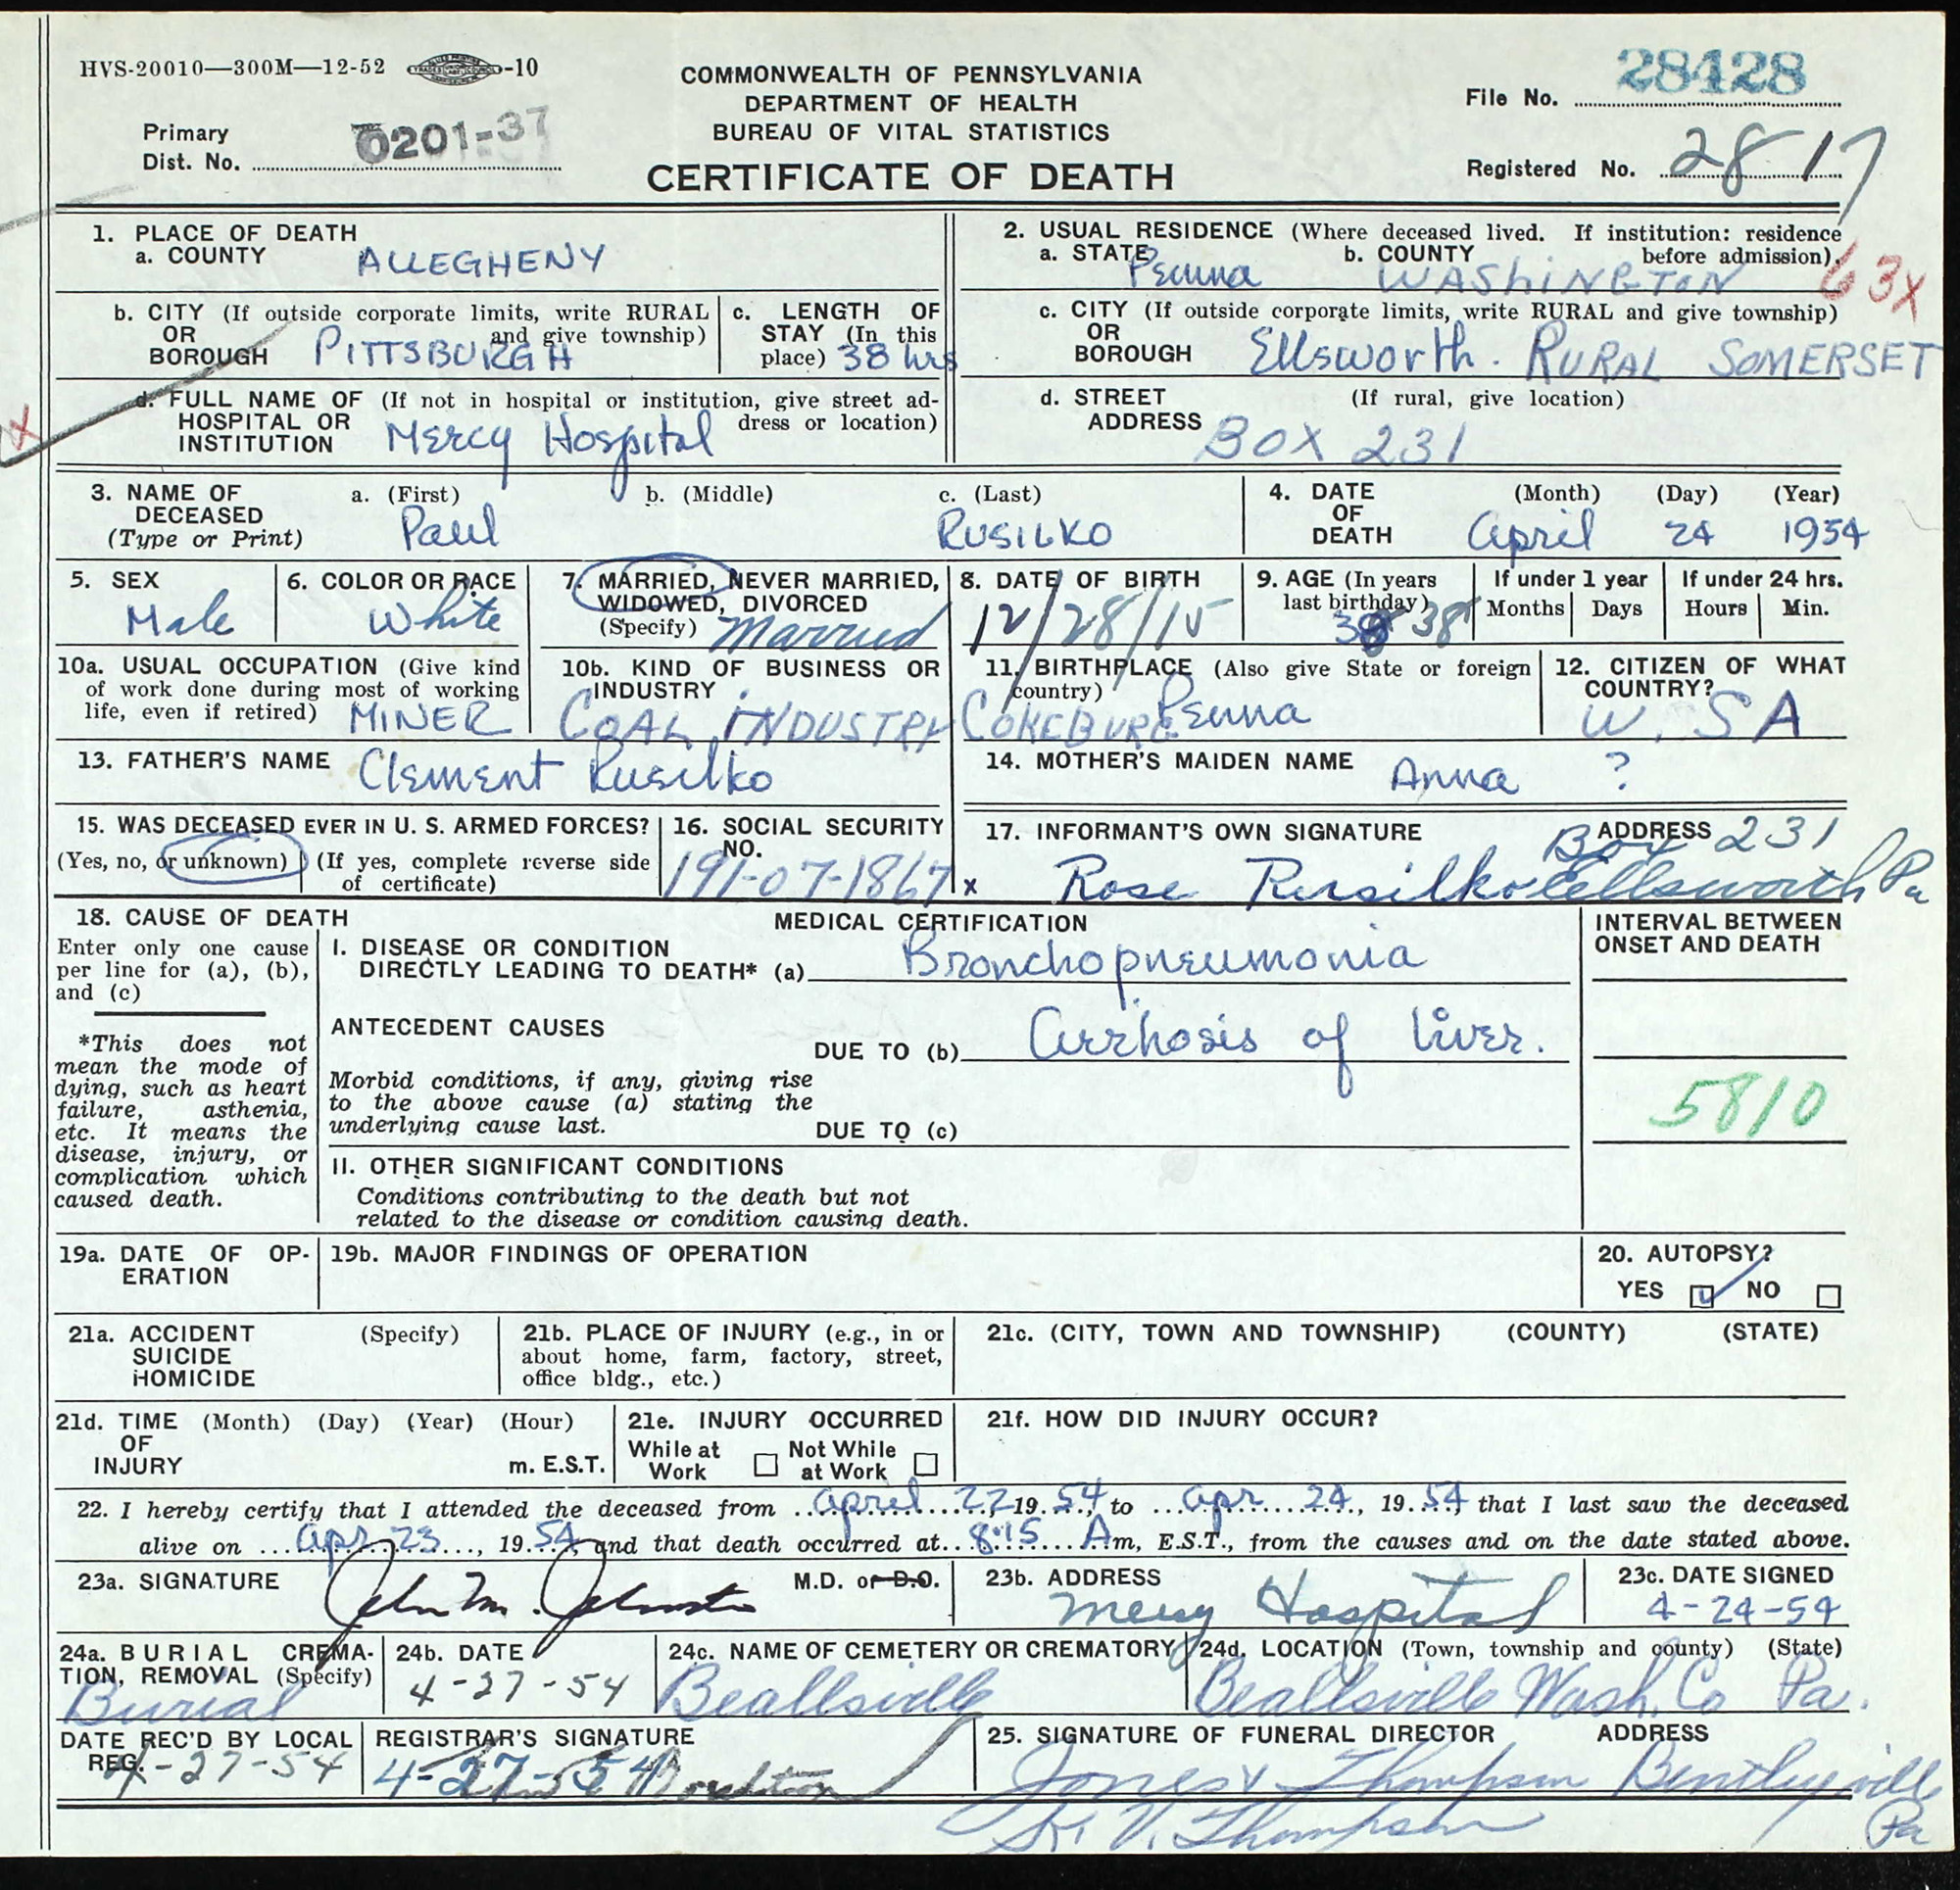 HVS-20010—300M—12-52 -10
COMMONWEALTH OF PENNSYLVANIA
DEPARTMENT OF HEALTH
BUREAU OF VITAL STATISTICS
CERTIFICATE OF DEATH
Primary
Dist. No. 0201-37
File No. 28428
Registered No. 2817
1. PLACE OF DEATH
a. COUNTY ALLEGHENY
b. CITY (If outside corporate limits, write RURAL
OR and give township)
BOROUGH PITTSBURGH
c. LENGTH OF
STAY (In this
place) 38 hrs
d. FULL NAME OF (If not in hospital or institution, give street ad-
HOSPITAL OR dress or location)
INSTITUTION Mercy Hospital
x
2. USUAL RESIDENCE (Where deceased lived. If institution: residence
before admission).
a. STATE Penna b. COUNTY WASHINGTON 63x
c. CITY (If outside corporate limits, write RURAL and give township)
OR
BOROUGH Ellsworth. RURAL SOMERSET
d. STREET (If rural, give location)
ADDRESS BOX 231
3. NAME OF a. (First) b. (Middle) c. (Last)
DECEASED
(Type or Print) Paul RUSILKO
4. DATE (Month) (Day) (Year)
OF
DEATH April 24 1954
5. SEX
Male
6. COLOR OR RACE
White
7. MARRIED, NEVER MARRIED,
WIDOWED, DIVORCED
(Specify) Married
8. DATE OF BIRTH
12/28/15
9. AGE (In years
last birthday)
38
If under 1 year
Months Days
If under 24 hrs.
Hours Min.
10a. USUAL OCCUPATION (Give kind
of work done during most of working
life, even if retired) MINER
10b. KIND OF BUSINESS OR
INDUSTRY
COAL INDUSTRY
11. BIRTHPLACE (Also give State or foreign
country)
COKEBURG Penna
12. CITIZEN OF WHAT
COUNTRY?
U.SA
13. FATHER'S NAME Clement Rusilko
14. MOTHER'S MAIDEN NAME Anna ?
15. WAS DECEASED EVER IN U. S. ARMED FORCES?
(Yes, no, or unknown) (If yes, complete reverse side
of certificate)
16. SOCIAL SECURITY
NO.
191-07-1867
17. INFORMANT'S OWN SIGNATURE ADDRESS
Box 231
x Rose Rusilko Ellsworth Pa
18. CAUSE OF DEATH
Enter only one cause
per line for (a), (b),
and (c)
*This does not
mean the mode of
dying, such as heart
failure, asthenia,
etc. It means the
disease, injury, or
complication which
caused death.
MEDICAL CERTIFICATION
I. DISEASE OR CONDITION
DIRECTLY LEADING TO DEATH* (a) Bronchopneumonia
ANTECEDENT CAUSES
DUE TO (b) Cirrhosis of liver.
Morbid conditions, if any, giving rise
to the above cause (a) stating the
underlying cause last.
DUE TO (c)
II. OTHER SIGNIFICANT CONDITIONS
Conditions contributing to the death but not
related to the disease or condition causing death.
INTERVAL BETWEEN
ONSET AND DEATH
5810
19a. DATE OF OP-
ERATION
19b. MAJOR FINDINGS OF OPERATION
20. AUTOPSY?
YES NO
21a. ACCIDENT (Specify)
SUICIDE
HOMICIDE
21b. PLACE OF INJURY (e.g., in or
about home, farm, factory, street,
office bldg., etc.)
21c. (CITY, TOWN AND TOWNSHIP) (COUNTY) (STATE)
21d. TIME (Month) (Day) (Year) (Hour)
OF
INJURY m. E.S.T.
21e. INJURY OCCURRED
While at Not While
Work at Work
21f. HOW DID INJURY OCCUR?
22. I hereby certify that I attended the deceased from April 22, 19 54, to Apr 24, 19 54, that I last saw the deceased
alive on Apr 23, 19 54, and that death occurred at 8:15 Am, E.S.T., from the causes and on the date stated above.
23a. SIGNATURE M.D. or D.O.
John M. Johnston
23b. ADDRESS
Mercy Hospital
23c. DATE SIGNED
4-24-54
24a. BURIAL CREMA-
TION, REMOVAL (Specify)
Burial
24b. DATE
4-27-54
24c. NAME OF CEMETERY OR CREMATORY
Beallsville
24d. LOCATION (Town, township and county) (State)
Beallsville Wash. Co Pa.
DATE REC'D BY LOCAL
REG.
4-27-54
REGISTRAR'S SIGNATURE
4-27-54
25. SIGNATURE OF FUNERAL DIRECTOR ADDRESS
Jones & Thompson Bentleyville
V. Thompson Pa